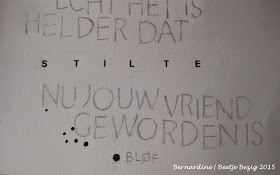 ECHT HET IS
HELDER DAT
STILTE
NU JOUW VRIEND
GEWORDEN IS
BLØF
Bernardine / Beetje Bezig 2015